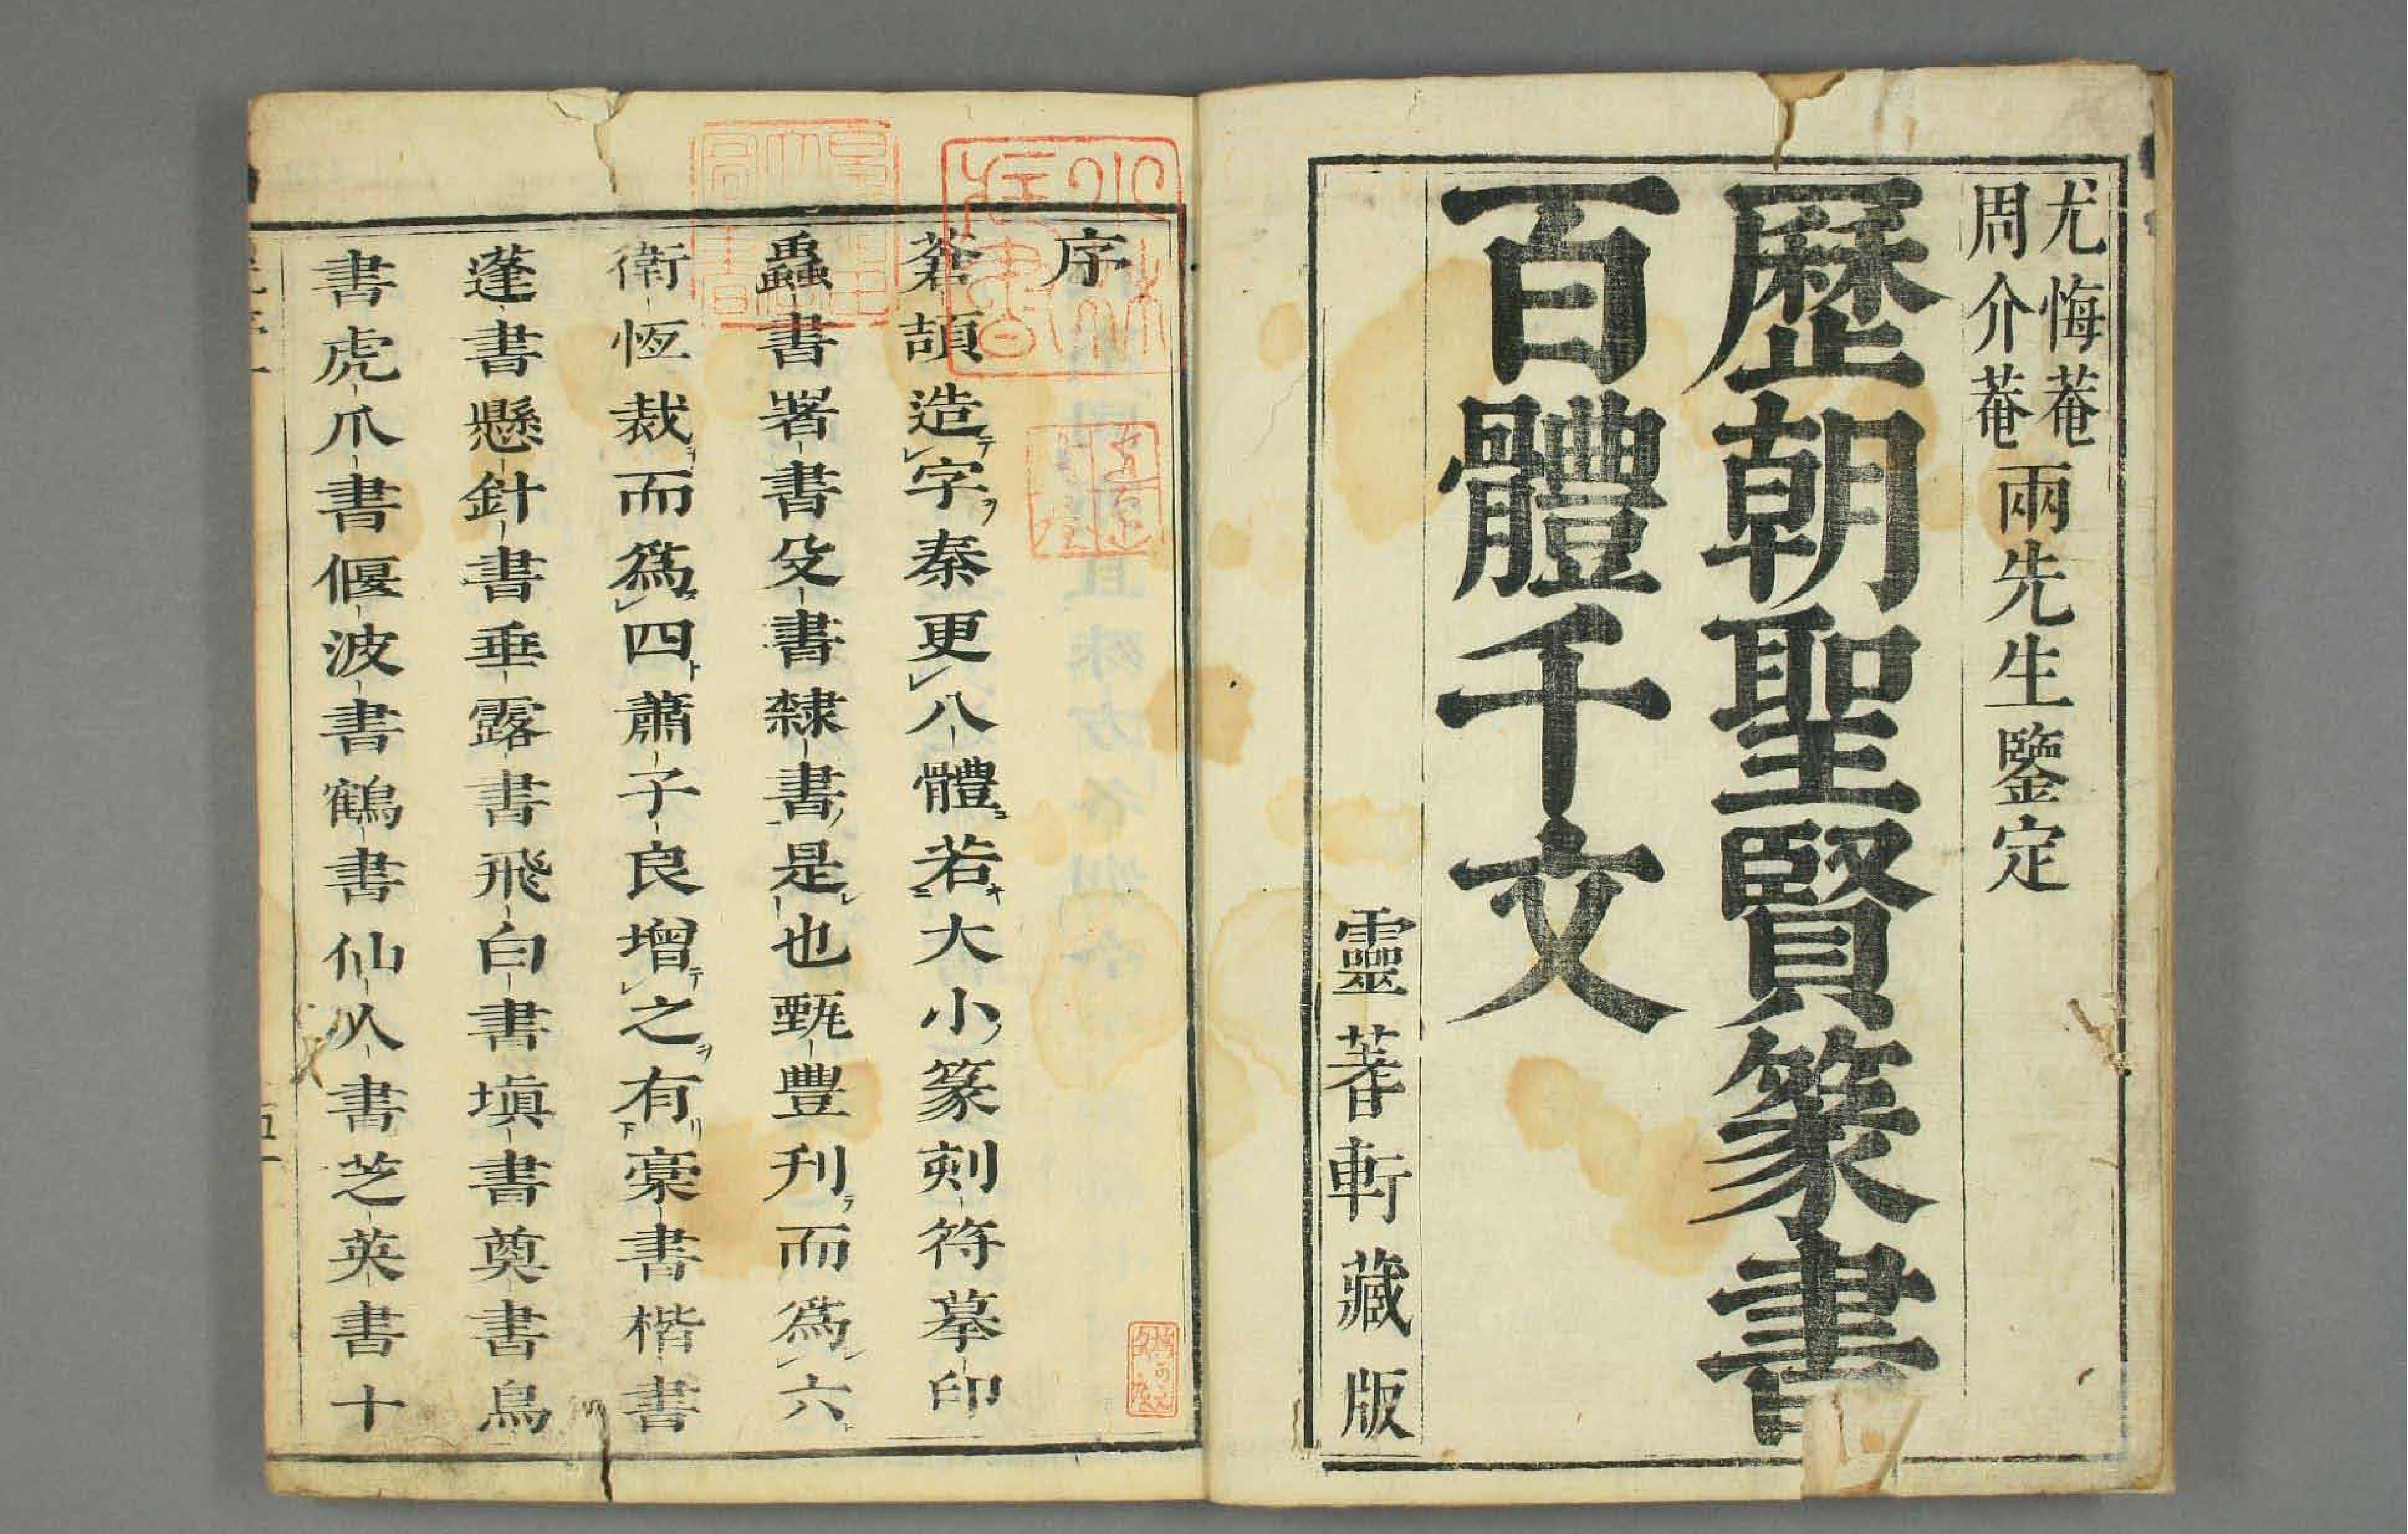 尤悔菴
周介菴
兩先生鑒定
歷朝聖賢篆書
百體千文
靈蓍軒藏版
序
蒼頡造テ字ヲ秦更八體ニ若キ大小ノ篆刻符摹印
蟲書署書殳書隸書ノ是レ也甄豐刋テ而爲六
衛恆裁ヲ而爲四ト蕭子良增テ之ヲ有リ下藁書楷書
蓬書懸針書垂露書飛白書塡書奠書鳥
書虎爪書偃波書鶴書仙人書芝英書十